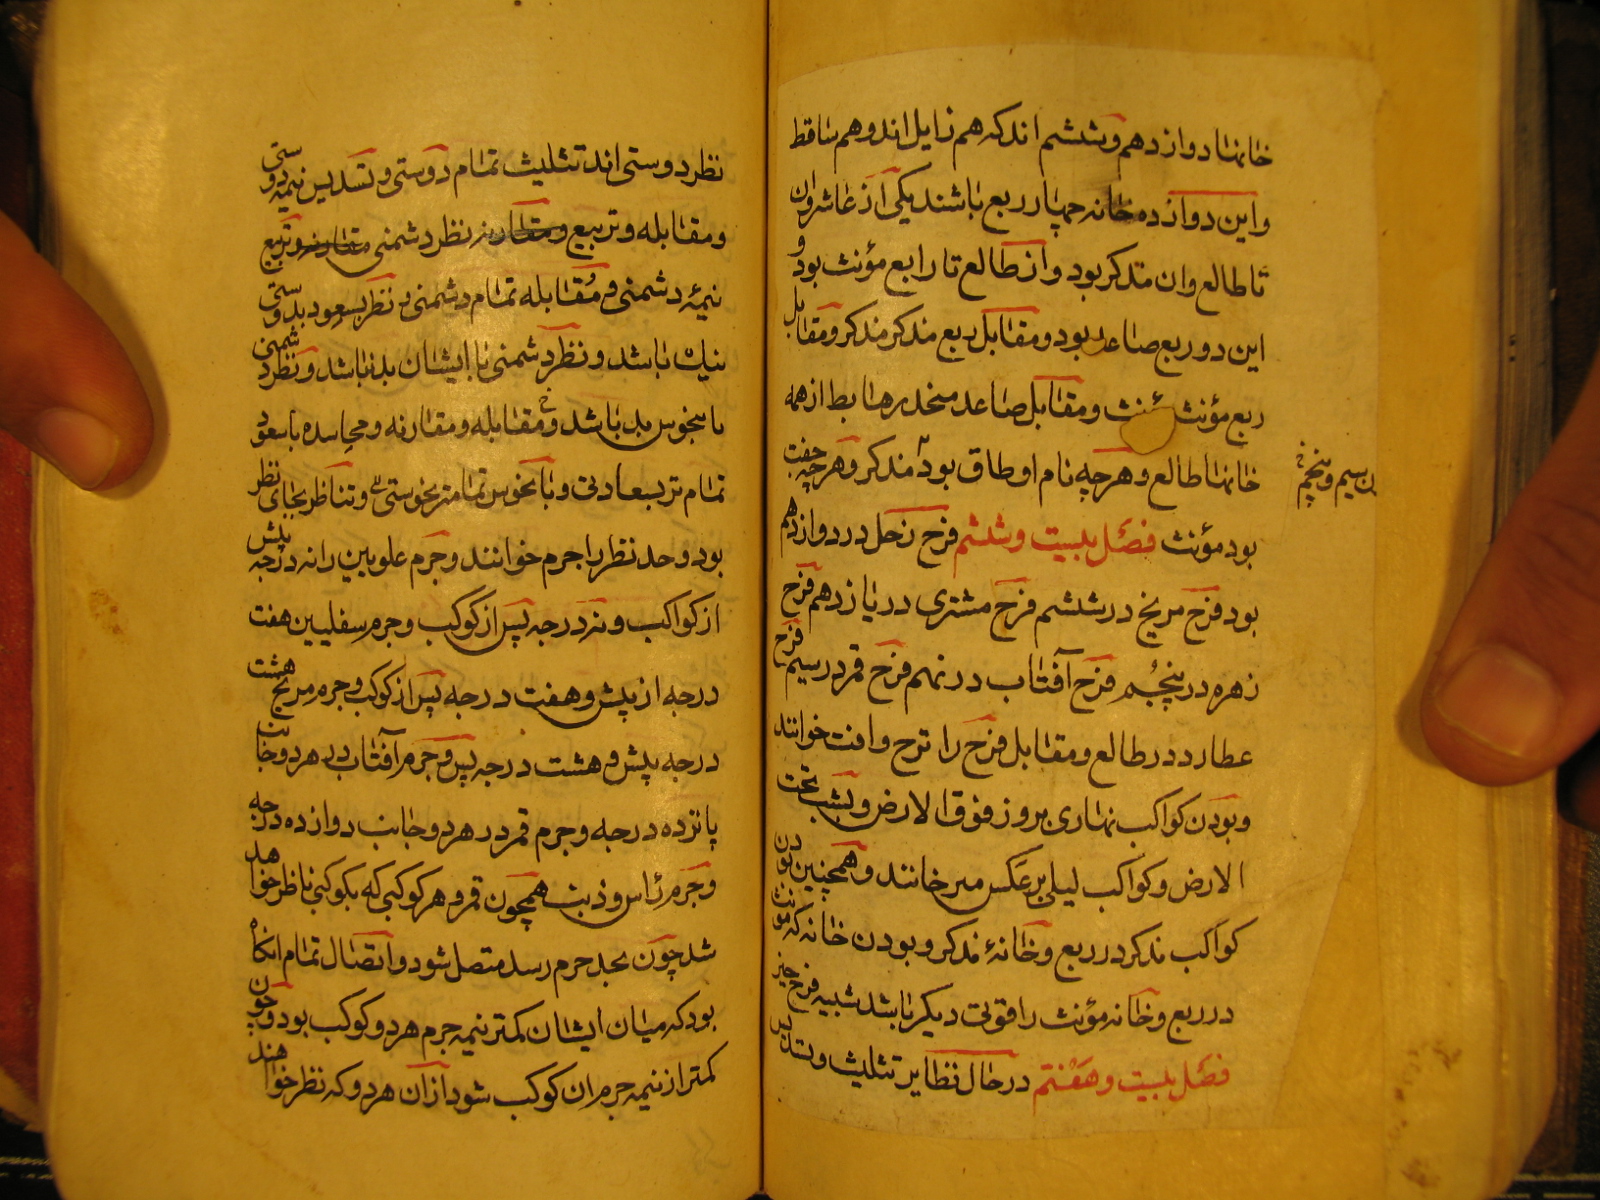 خانها دوازدهم و ششم اند که هم زایل اند و هم ساقط
و این دوازده خانه چهار ربع باشند یکی از عاشر و ان
تا طالع وان مذکر بود و از طالع تا رابع مؤنث بود و
این دو ربع صاعد بود و مقابل ربع مذکر مذکر و مقابل
ربع مؤنث مؤنث و مقابل صاعد منحدر هابط از همه
خانها طالع و هرچه نام او طاق بود مذکر و هرچه جفت
ن سیم و پنجم
بود مؤنث فصل بیست و ششم فرح زحل در دوازدهم
بود فرح مریخ در ششم فرح مشتری در یازدهم فرح
زهره در پنجم فرح آفتاب در نهم فرح قمر در سیم فرح
عطارد در طالع و مقابل فرح را ترح و افت خوانند
و بودن کواکب نهاری بروز فوق الارض و بشب تحت
الارض و کواکب لیلی بر عکس خانند و همچنین بودن
کواکب مذکر در ربع و خانهٔ مذکر و بودن خانه که مونث
در ربع و خانه مؤنث را قوتی دیکر باشد شبیه فرح حیز
فصل بیست و هفتم در حال نظایر تثلیث و تسدیس
نظر دوستی اند تثلیث تمام دوستی و تسدیس نیمه دوستی
و مقابله و تربیع و مقارنه نظر دشمنی مقارنه و تربیع
نیمهٔ دشمنی و مقابله تمام دشمنی نظر بسعود بدوستی
نیك باشد و نظر دشمنی با ایشان بد نباشد و نظر دشمنی
با نحوس بد باشد و مقابله و مقارنه و مجاسده با سعود
تمام تر بسعادتی و با نحوس تمامتر بنحوستی و تناظر بجای نظر
بود و حد نظر را جرم خوانند و جرم علویین را نه درجه پیش
از کواکب و نه درجه پس از کوکب و جرم سفلیین هفت
درجه از پیش و هفت درجه پس از کوکب و جرم مریخ هشت
درجه پیش و هشت درجه پس و جرم آفتاب در هر دو جانب
پانزده درجه و جرم قمر در هر دو جانب دوازده درجه
و جرم رأس و ذنب همچون قمر و هر کوکبی که بکوکبی ناظر خواهد
شد چون بحد جرم رسد متصل شود و اتصال تمام انکاه
بود که میان ایشان کمتر نیمه جرم هر دو کوکب بود و چون
کمتر از نیمه جرم ان کوکب شود ازان هر دو که نظر خواهند